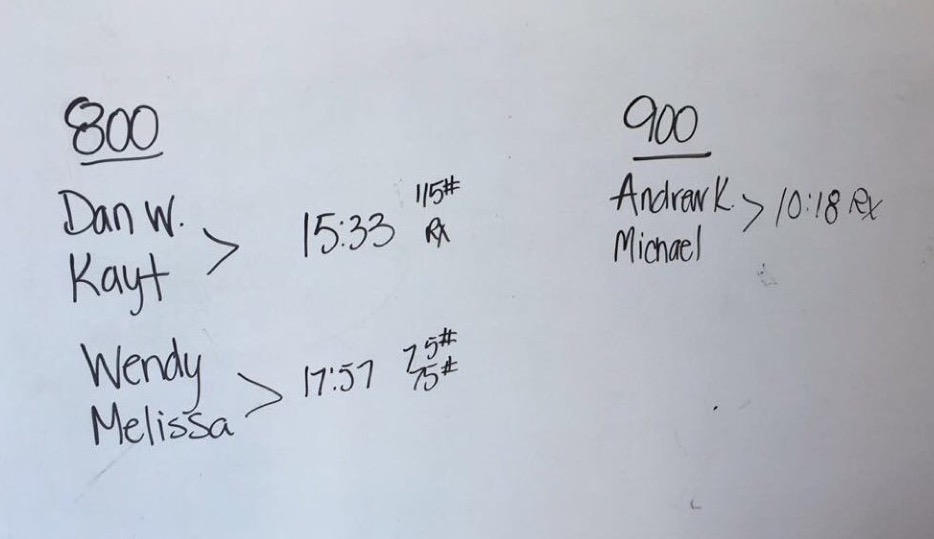 800
Dan W.
Kayt
> 15:33
115#
Rx
Wendy
Melissa
> 17:57
75#
75#
900
Andrew K.
Michael
> 10:18 Rx